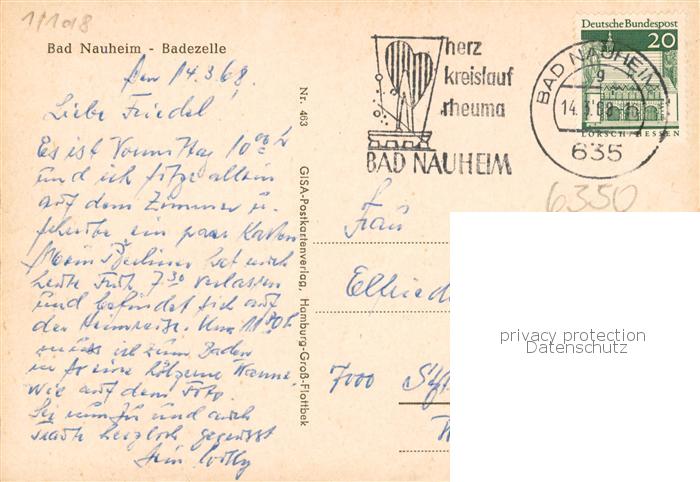 1/1018
Bad Nauheim - Badezelle
den 14.3.68.
Liebe Friedel!
Es ist Vormittag 10 00 h
und ich sitze allein
auf dem Zimmer u.
schreibe ein paar Karten
Mein Berliner hat mich
heute Früh 7.30 verlassen
und befindet sich auf
der Heimreise. Um 11 30 h
muss ich zum Baden
in so eine hölzerne Wanne,
wie auf dem Foto.
Sei nun Du und auch
herzlich gegrüsst
Nr. 463
GISA-Postkartenverlag, Hamburg-Groß-Flottbek
herz
kreislauf
rheuma
BAD NAUHEIM
BAD NAUHEIM
g
14.3.68
635
Deutsche Bundespost
20
LORSCH/HESSEN
6350
Frau
Elfriede
7000
privacy protection
Datenschutz